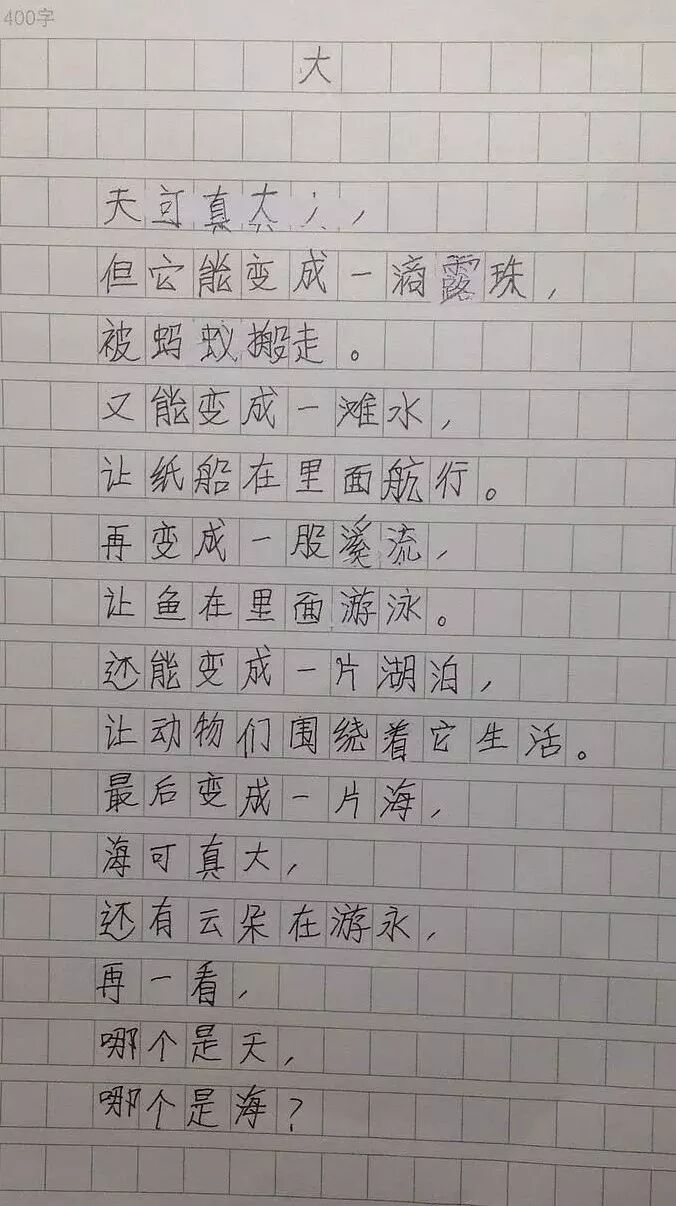 400字
大
天可真大，
但它能变成一滴露珠，
被蚂蚁搬走。
又能变成一滩水，
让纸船在里面航行。
再变成一股溪流，
让鱼在里面游泳。
还能变成一片湖泊，
让动物们围绕着它生活。
最后变成一片海，
海可真大，
还有云朵在游永，
再一看，
哪个是天，
哪个是海？